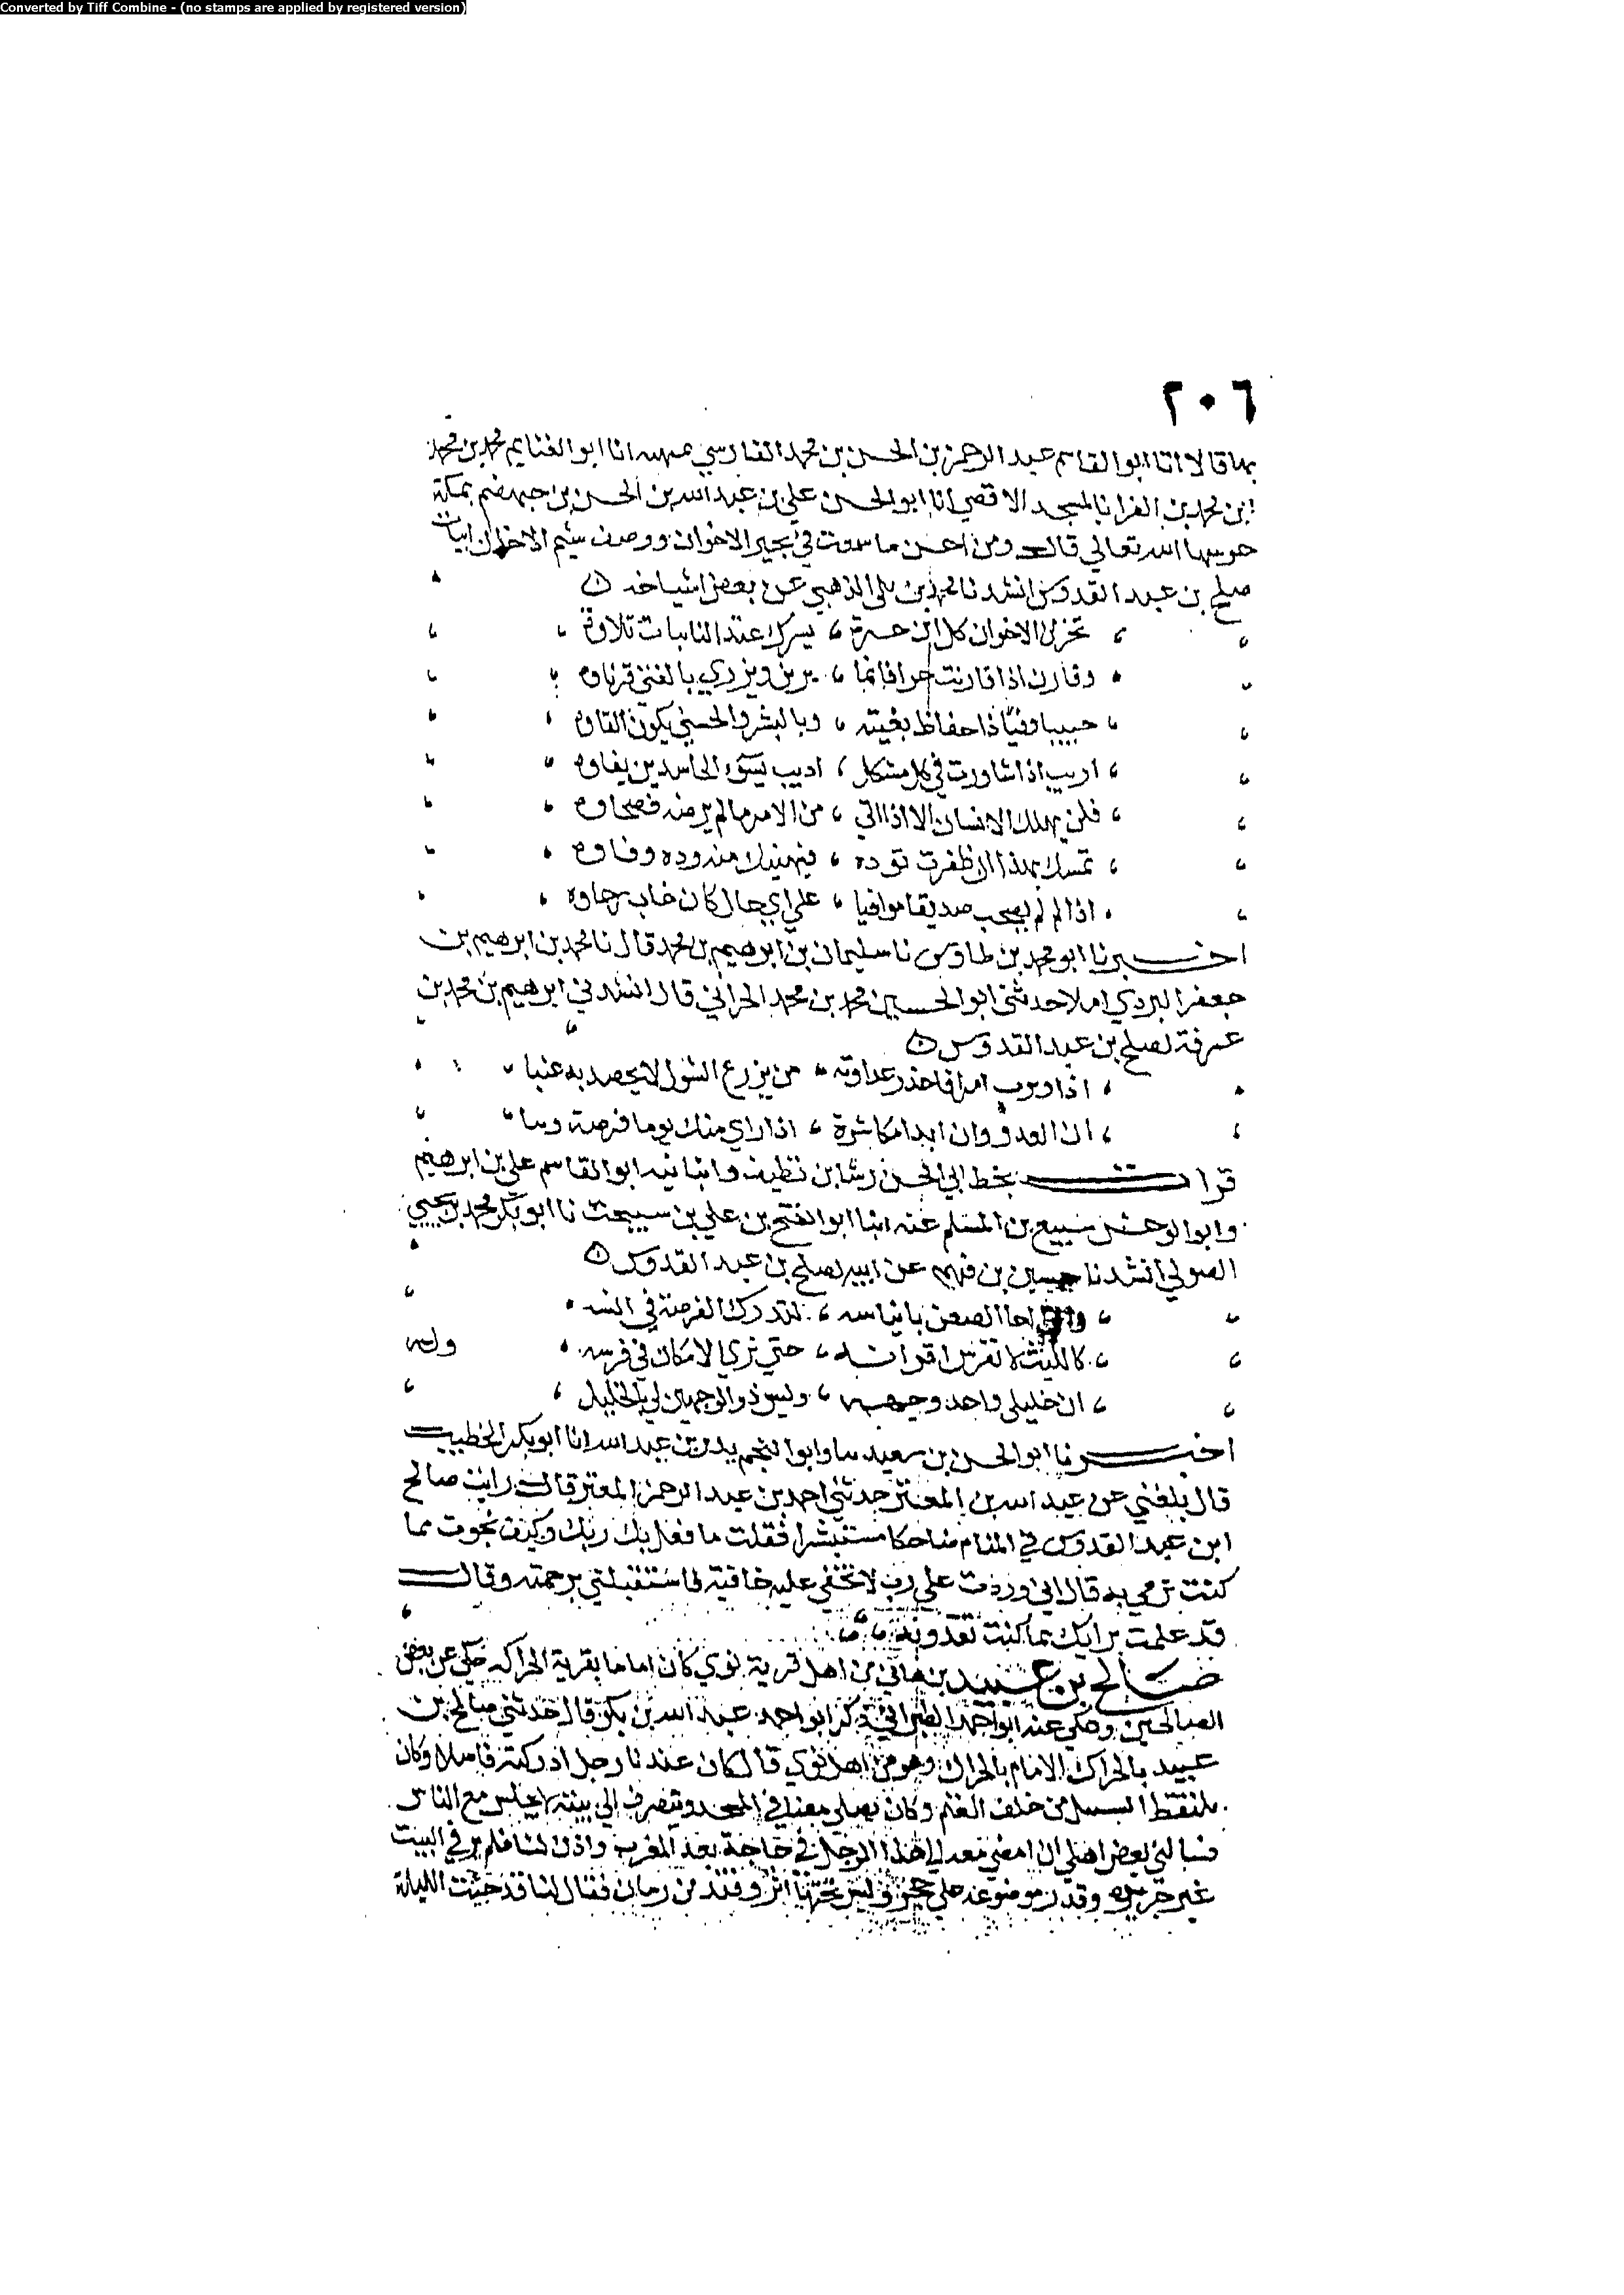 Converted by Tiff Combine - (no stamps are applied by registered version)
٢٠٦
بها قالا انا ابو القاسم عبد الرحمن بن الحسن بن محمد الفارسي انا ابو الغنايم محمد بن محمد
ابن محمد بن الفرا بالمسجد الاقصي انا ابو الحسن علي بن عبد الله بن الحسن بن جهضم بمكة
حرسها الله تعالي قال ومن احسن ما سمعت في تخير الاخوان ووصف شيم الاخلاق ابيات
صلح بن عبد القدوس انشدنا محمد بن علي الذهبي عن بعض اشياخه
تخر من الاخوان كل ابن حرة ، يسرك عند النايبات تلاوه
وقارن اذا قارنت حرا فانما ، يزين ويزري بالفتي قرناوه
حبيبا وفيا ذا حفاظ بغيته ، وبالبشر والحسني يكون القاوه
اريب اذا شاورت في كل مشكل ، اديب يسوء الحاسدين بقاوه
فلن يهلك الانسان الا اذا اتي ، من الامر ما لم يرضه نصحاوه
تمسك بهذا ان ظفرت بوده ، فيهنيك منه وده ووفاوه
اذا المرء لم يصحب صديقا موافيا ، علي اي حال كان خاب رجاوه
اخبرنا ابو محمد بن طاوس نا سليمان بن ابرهيم بن محمد قال نا محمد بن ابرهيم بن
جعفر اليزدي املا حدثني ابو الحسين محمد بن محمد الحراني قال انشدني ابرهيم بن محمد بن
عرفة لصلح بن عبد القدوس
اذا وترت امرا فاحذر عداوته ، من يزرع الشوك لا يحصد به عنبا
ان العدو وان ابدا مكاشرة ، اذا راي منك يوما فرصة وثبا
قرات بخط ابي الحسن رشا بن نظيف وانبانيه ابو القاسم علي بن ابرهيم
وابو الوحش سبيع بن المسلم عنه انبا ابو الفتح بن علي بن سيبخت نا ابو بكر محمد بن يحيي
الصولي انشدنا حسين بن فهم عن ابيه لصلح بن عبد القدوس
اخا الضغن بايناسه ، لتدرك الفرصة في انسه
كالليث لا تفرس اقرانه ، حتي تري الامكان في فرسه وله
ان خليلي واحد وجهه ، وليس ذو الوجهين لي بالخليل
اخبرنا ابو الحسن بن سعيد نا وابو النجم بدر بن عبد الله انا ابو بكر الخطيب
قال بلغني عن عبد الله بن المعتز حدثني احمد بن عبد الرحمن المعبر قال رايت صالح
ابن عبد القدوس في المنام ضاحكا مستبشرا فقلت ما فعل بك ربك وكيف نجوت مما
كنت ترمي به قال اني وردت علي رب لا تخفي عليه خافية فاستقبلني برحمته وقال
قد علمت براتك مما كنت تقذف به
صالح بن عبيد بن هاني من اهل قرية نوي كان اماما بقرية الحراك حكي عن بعض
الصالحين وحكي عنه ابو احمد الطبراني ذكر ابو احمد عبد الله بن بكر قال حدثني صالح بن
عبيد بالحراك الامام بالحراك وهو من اهل نوي قال كان عندنا رجل ادركته فاضلا وكان
يلتقط السنبل من خلف الغنم وكان يصلي معنا في المسجد وينصرف الي بيته لا يجلس مع الناس
فسالني بعض اهلي ان امضي معه الي هذا الرجل في حاجة بعد المغرب واذن لنا فلم نر في البيت
غير وقدر موضوعة علي حجرين وليس تحتها اثر وقد من زمان فقال لنا قد جيت الليلة